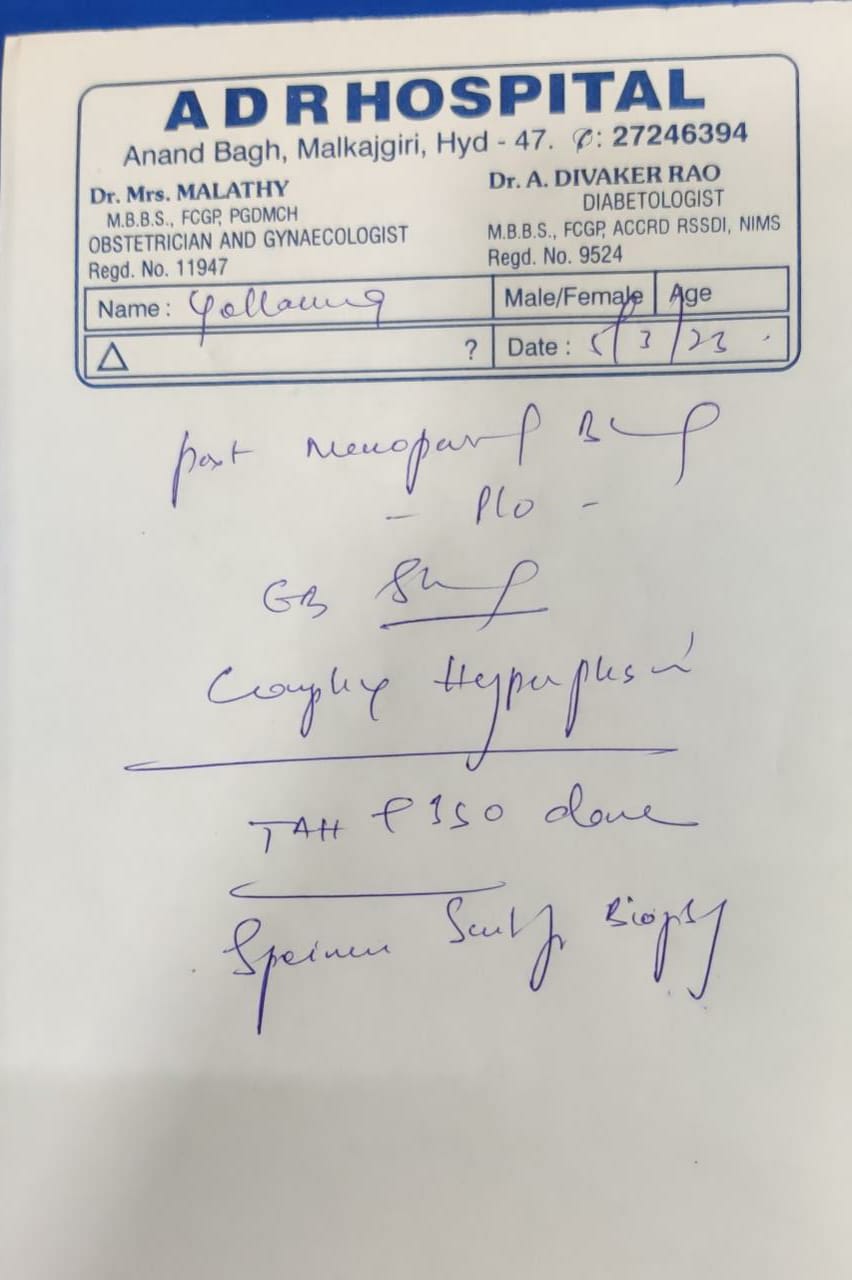 A D R HOSPITAL
Anand Bagh, Malkajgiri, Hyd - 47. ✆: 27246394
Dr. Mrs. MALATHY
M.B.B.S., FCGP, PGDMCH
OBSTETRICIAN AND GYNAECOLOGIST
Regd. No. 11947
Dr. A. DIVAKER RAO
DIABETOLOGIST
M.B.B.S., FCGP, ACCRD RSSDI, NIMS
Regd. No. 9524
Name :
Male/Female Age
△ ? Date : 5/3/23
post
- P/O -
Complex Hyperplasia
TAH done
Specimen Sent for Biopsy